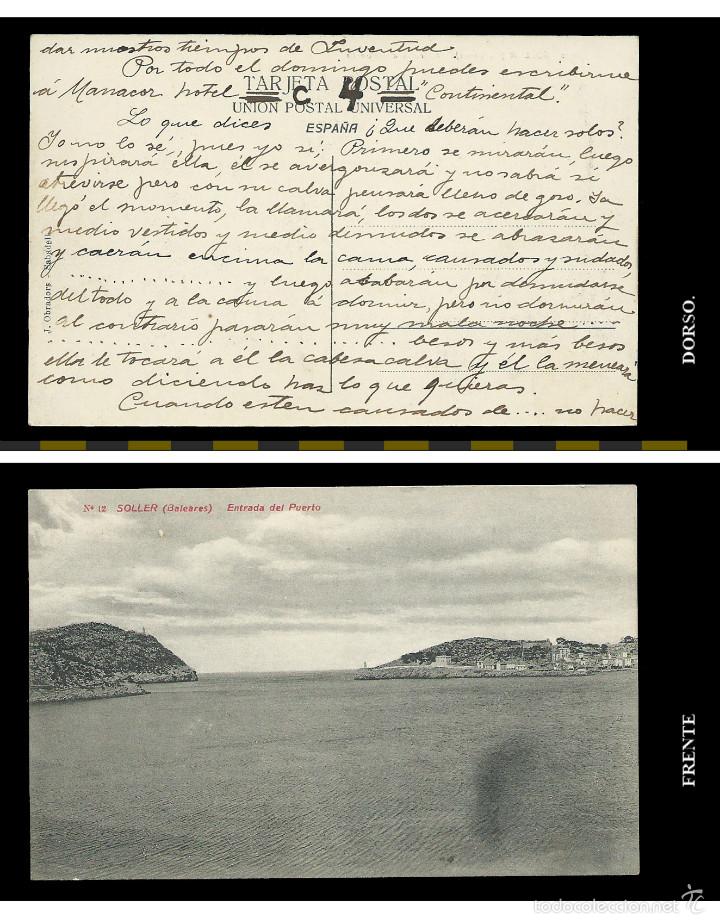 dar nuestros tiempos de Juventud.
Por todo el domingo puedes escribirme
á Manacor hotel "Continental".
TARJETA POSTAL
C 4
UNIÓN POSTAL UNIVERSAL
ESPAÑA
Lo que dices ¿Que deberán hacer solos?
Yo no lo sé, pues yo si: Primero se mirarán, luego
suspirará élla, él se avergonzará y no sabrá si
atrevirse pero con su calva pensará lleno de goso. Ya
llegó el momento, la llamará, los dos se acercarán y
medio vestidos y medio desnudos se abrasarán
y caerán encima la cama, causados y sudados,
................ y luego acabarán por desnudarse
del todo y a la cama á dormir, pero no dormirán
al contrario pasarán muy mala noche .....
.................................... besos y más besos
ella le tocará a él la cabesa calva y él la meneará
como diciendo haz lo que quieras.
Cuando esten causados de .... no hacer
J. Obradors - Sabadell
DORSO.
Nº 12 SOLLER (Baleares) Entrada del Puerto
FRENTE
todocoleccion.net
TC